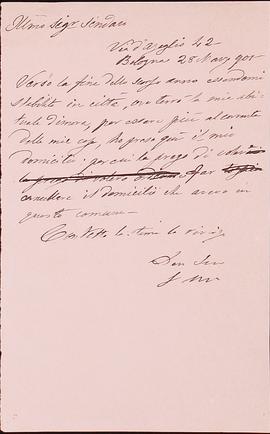 Illmo Sigr Sindaco
Via d'Azeglio 42
Bologna 28 Marzo 901
Verso la fine dello scorso anno essendomi
stabilito in città, ove terrò la mia abi-
tuale dimora, per essere più al corrente
delle mie cose, ho preso qui il mio
domicilio per cui la prego di
la prego di
cancellare il domicilio che avevo in
questo comune.
Con tutta la stima la